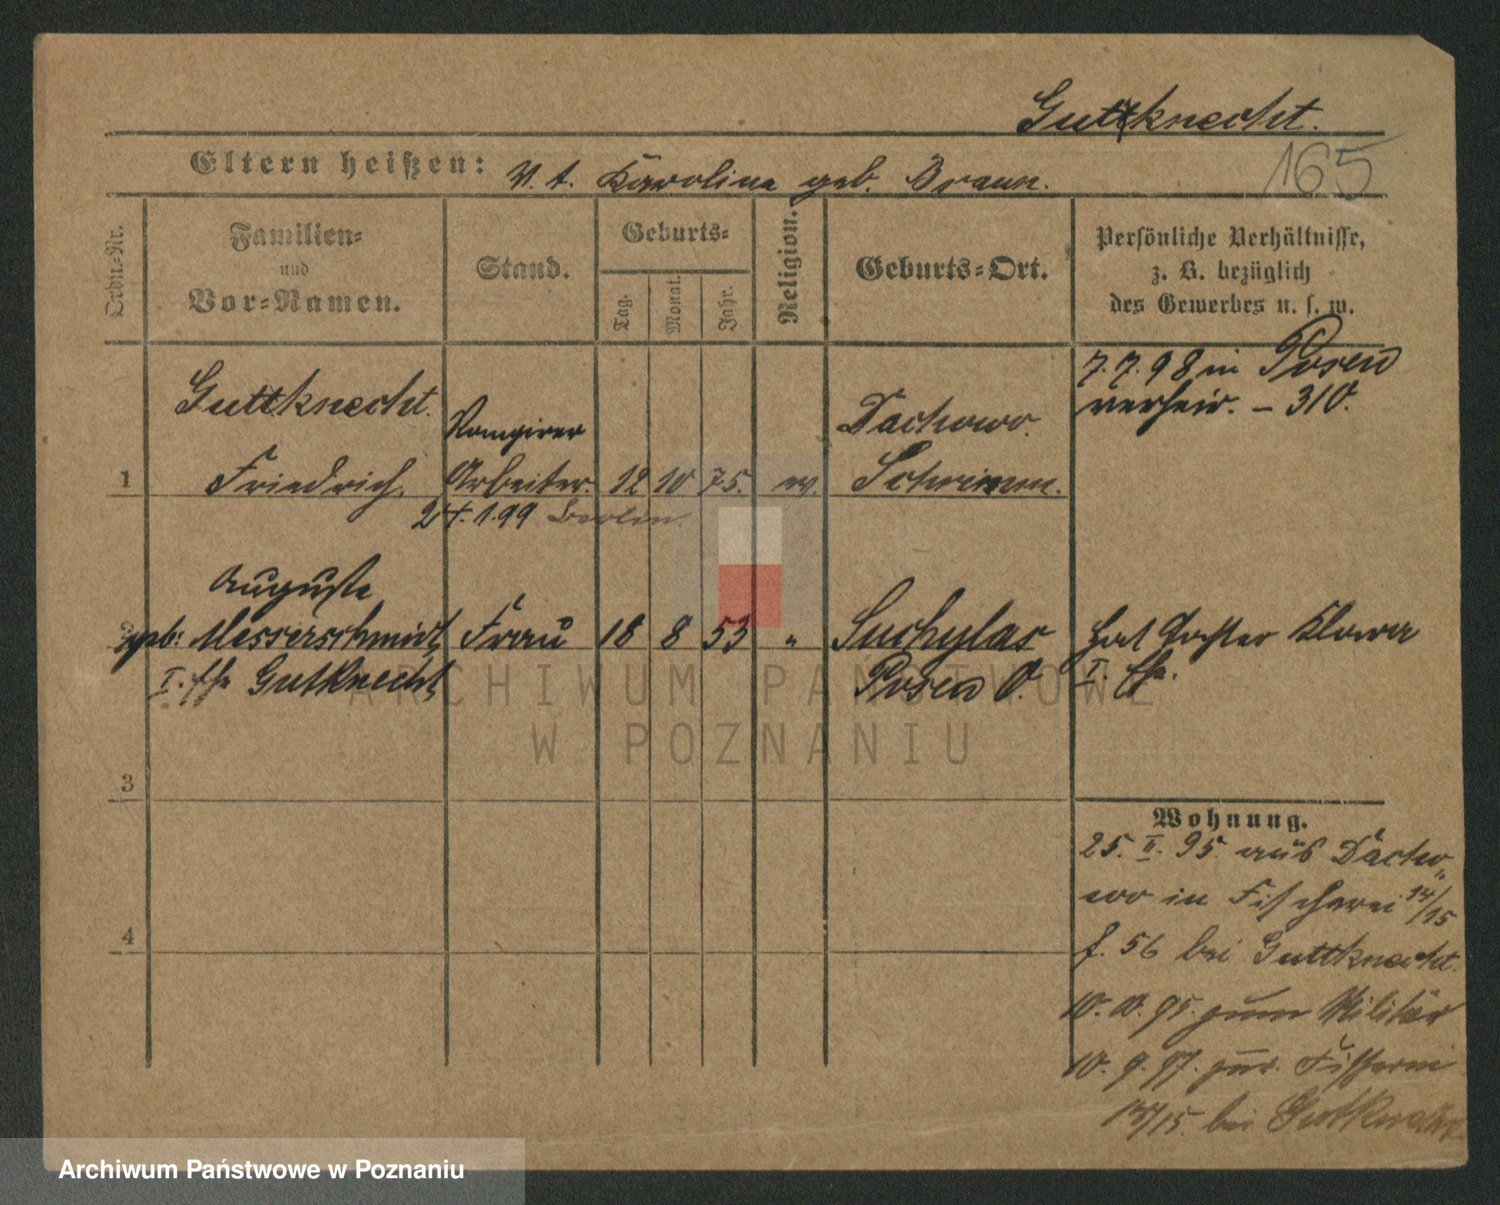 Guttknecht.
165
Eltern heißen: V. t. Karolina geb. Braun.
Ordn.-Nr.
Familien-
und
Vor-Namen.
Stand.
Geburts-
Tag.
Monat.
Jahr.
Religion.
Geburts-Ort.
Persönliche Verhältnisse,
z. B. bezüglich
des Gewerbes u. s. w.
7.7.98 in Posen
verheir. – 310.
Guttknecht.
Rangirer
Dachowo.
1 Friedrich. Arbeiter. 12 10 75. ev. Schrimm.
24.1.99 Berlin.
Auguste
2 geb: Messerschmidt Frau 18 8 53 " Suchylas Hat Tochter Klara
I. Ehe Gutknecht Posen O. I. Ehe.
3
4
Wohnung.
25. II. 95. aus Dacho„
wo in Fischerei 14/15
f. 56 bei Guttknecht.
95. zum Militär
10. 9. 97. zur. Fischerei
14/15. bei Gutknecht
ARCHIWUM PAŃSTWOWE
W POZNANIU
Archiwum Państwowe w Poznaniu